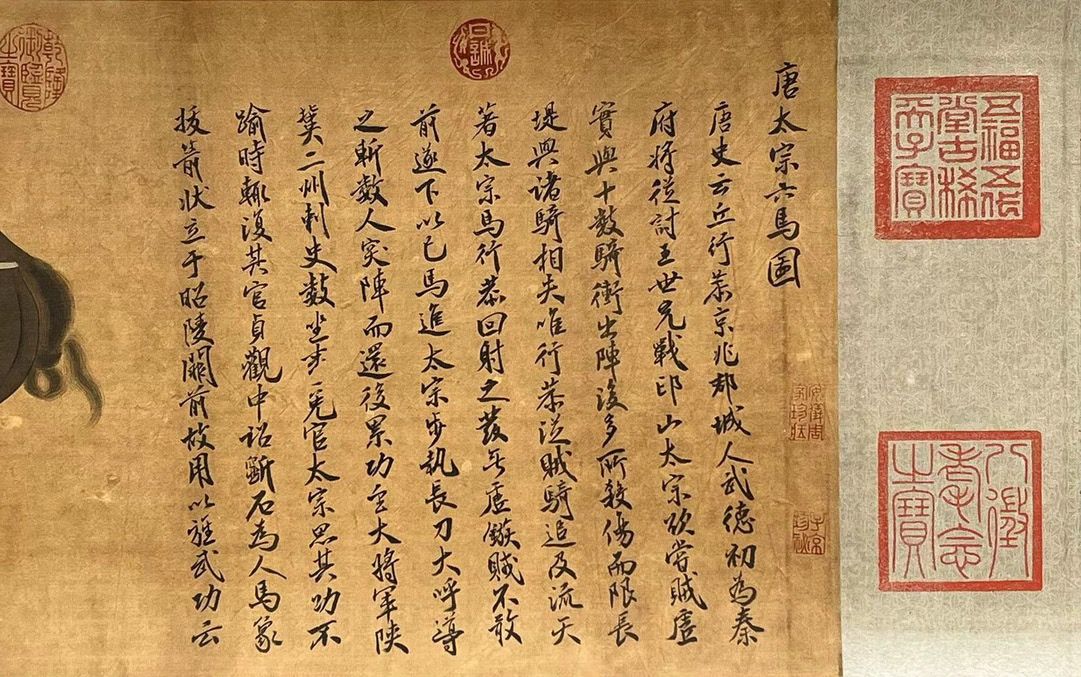 五福五代
堂古稀
天子寶
八徵
耄念
之寶
唐太宗六馬圖
唐史云丘行恭京兆郡城人武德初為秦
府將從討王世充戰邙山太宗欲嘗賊虛
實與十數騎衝出陣後多所殺傷而限長
堤與諸騎相失唯行恭從賊騎追及流矢
著太宗馬行恭回射之發無虛鏃賊不敢
前遂下以己馬進太宗步執長刀大呼導
之斬數人突陣而還後累功至大將軍陝
冀二州刺史數坐事免官太宗思其功不
踰時輒復其官貞觀中詔斲石為人馬象
拔箭狀立于昭陵闕前故用以旌武功云
安儀周
家珍藏
乾隆
御覽
之寶